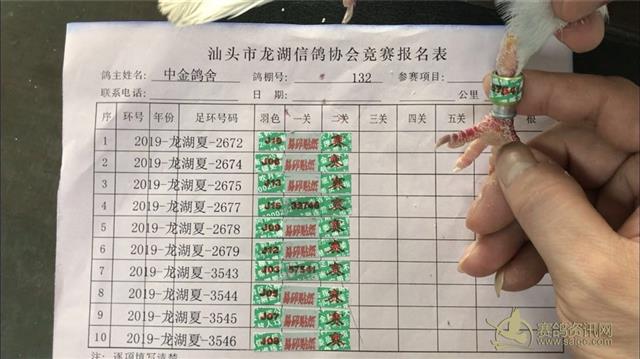 汕头市龙湖信鸽协会竞赛报名表
鸽主姓名: 中金鸽舍 鸽棚号: 132 参赛项目:
联系电话: 日 期: 公里
序 环号 年份 足环号码 羽色 一关 二关 三关 四关 五关 根
1 2019-龙湖夏-2672 易碎贴纸 寒
2 2019-龙湖夏-2674 J06 易碎贴纸 寒
3 2019-龙湖夏-2675 J13 易碎贴纸 寒
4 2019-龙湖夏-2677 J15 33746 寒
5 2019-龙湖夏-2678 J09 易碎贴纸 寒
6 2019-龙湖夏-2679 J12 易碎贴纸 寒
7 2019-龙湖夏-3543 J03 57541 寒
8 2019-龙湖夏-3544 J05 易碎贴纸 寒
9 2019-龙湖夏-3545 J07 易碎贴纸 寒
10 2019-龙湖夏-3546 J08 易碎贴纸 寒
注: 逐项填写清楚
赛鸽资讯网
www.saige.com